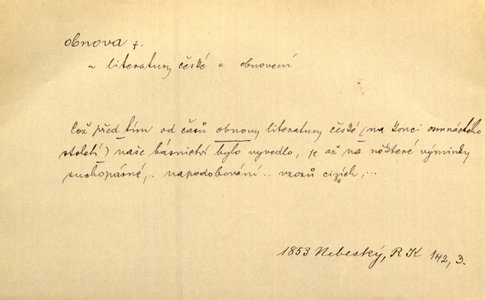 obnova f.
~ literatury české = obnovení
Což před tím od časů obnovy literatury české (na konci osmnáctého
století) naše básnictví bylo vyvedlo, je až na některé výminky
suchopárné,.. napodobování .. vzorů cizích,...
1853 Nebeský, RK 142, 3.